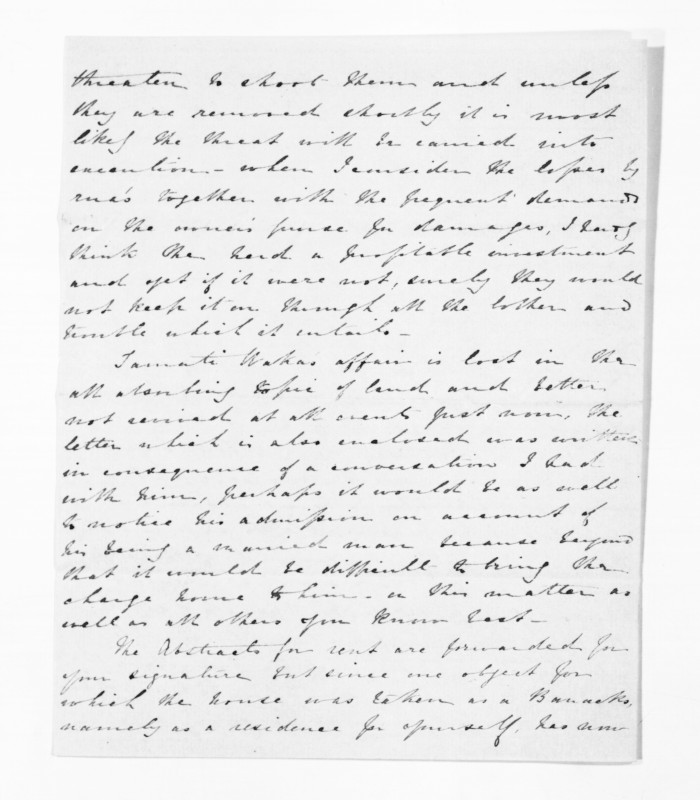 threaten to shoot them and unless
they are removed shortly it is most
likely the threat will be carried into
execution - when I consider the losses by
rua's together with the frequent demands
on the owner's purse for damages, I
think the herd a profitable investment
and yet if it were not, surely they would
not keep it on through all the bother and
trouble which it entails -
Tamati Waka's affair is lost in the
all absorbing topic of land and better
not revived at all events just now, The
letter which is also enclosed was written
in consequence of a conversation I had
with him, perhaps it would be as well
to notice his admission on account of
his being a married man because beyond
that it would be difficult to bring the
charge home to him - in this matter as
well as all others you know best -
The Abstracts for rent are forwarded for
your signature but since one object for
which the house was taken as a Barracks,
namely as a residence for yourself, has now